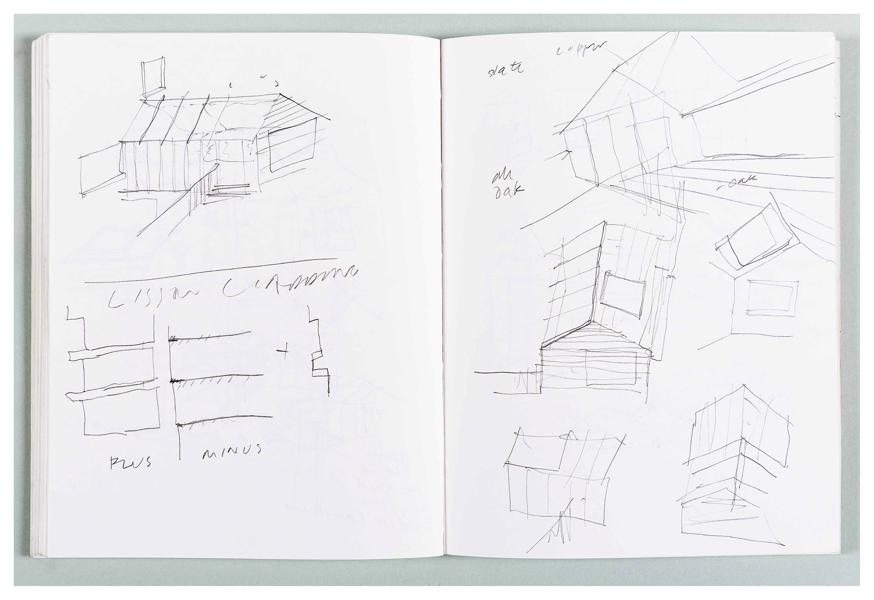 LISSON CLADDING
PLUS
MINUS
slate
copper
oak
oak